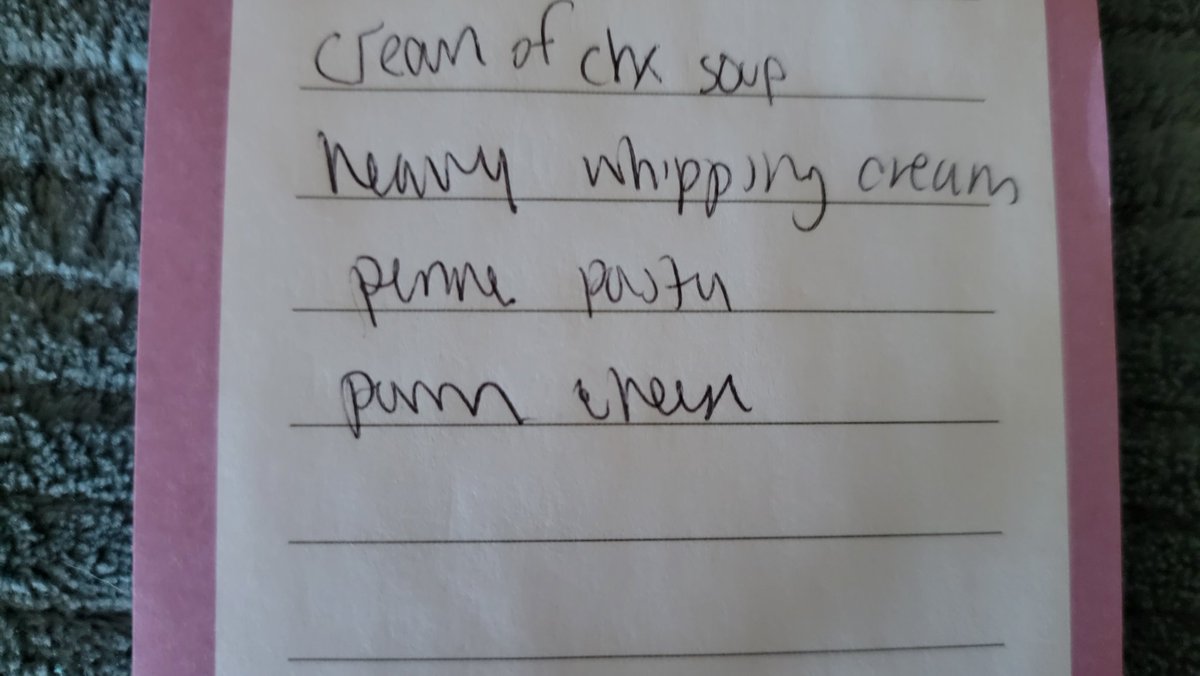 cream of chx soup
heavy whipping cream
penne pasta
parm cheese